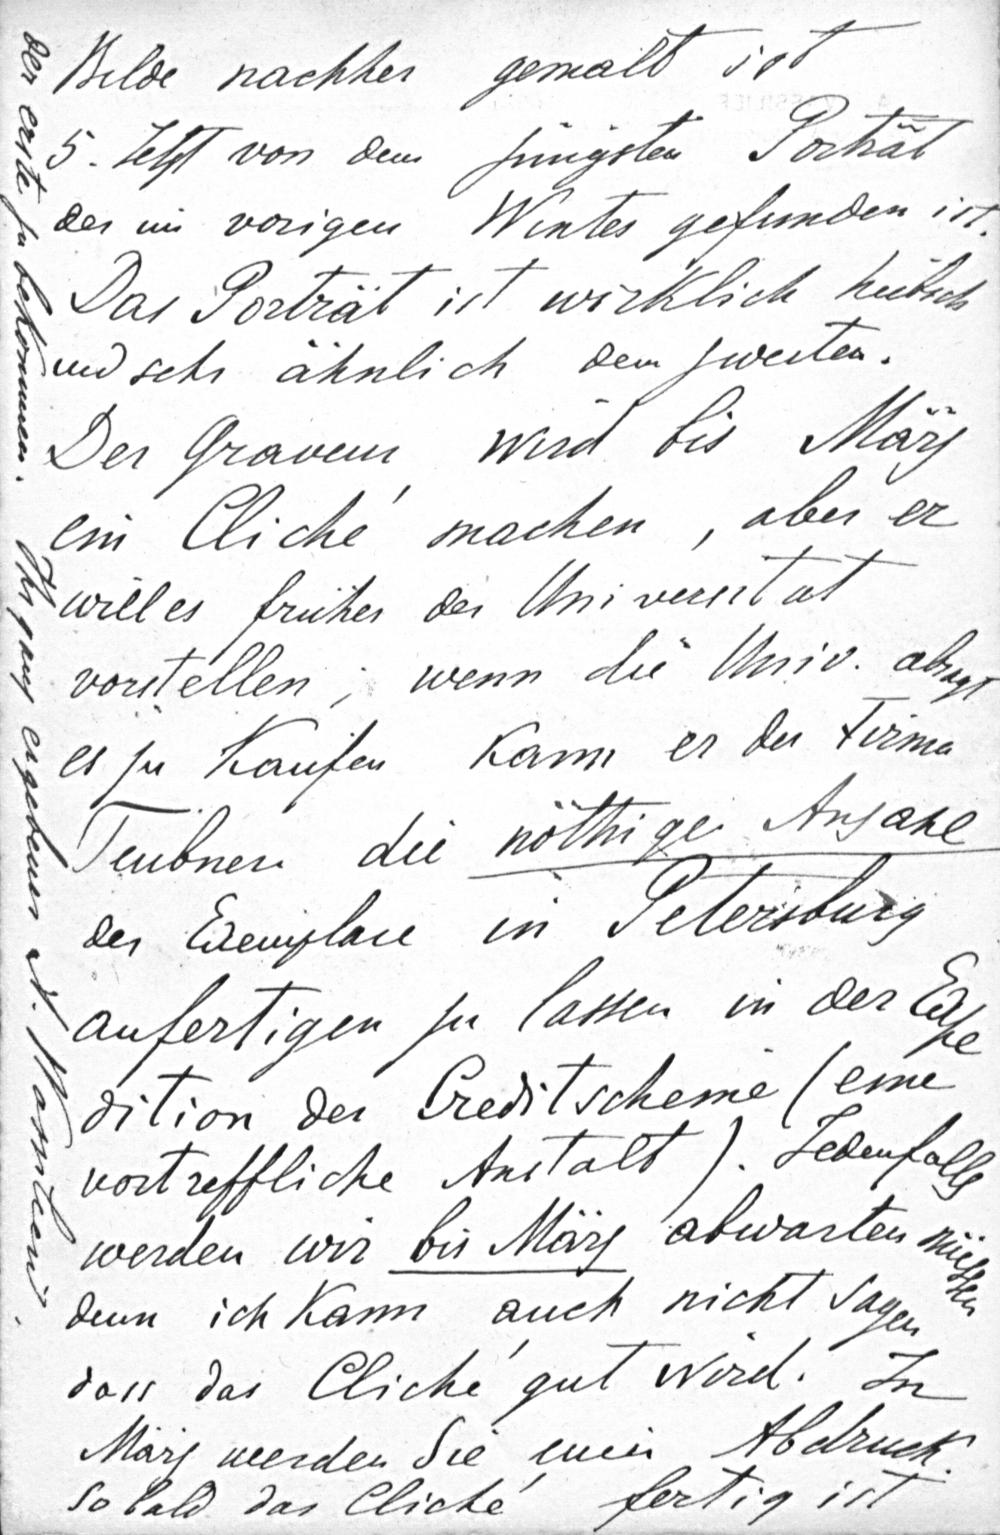 Bilde nachher gemalt ist
5. Jetzt von dem jüngsten Porträt
der im vorigen Winter gefunden ist.
Das Porträt ist wirklich hübsch
und sehr ähnlich dem zweiten.
Der Graveur wird bis März
ein Cliché machen, aber er
will es früher der Universitat
vorstellen; wenn die Univ. absagt
es zu Kaufen Kann er der Firma
Teubner die nöthige Anzahl
der Exemplare in Petersburg
anfertigen zu lassen in der Expe
dition der Creditscheine (eine
vortreffliche Anstalt). Jedenfalls
werden wir bis März abwarten müssen
denn ich Kann auch nicht sagen
dass das Cliché gut wird. In
März werden Sie einen Abdruck.
Sobald das Cliché fertig ist
der erste zu bekommen. Ihr ganz ergebener A. Wassilieff.